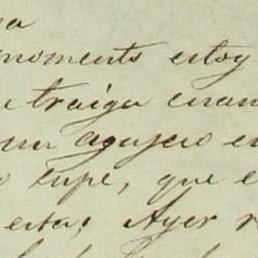 a
momento estoy
traiga cuan
un agujero e
supe, que e
esta; Ayer r